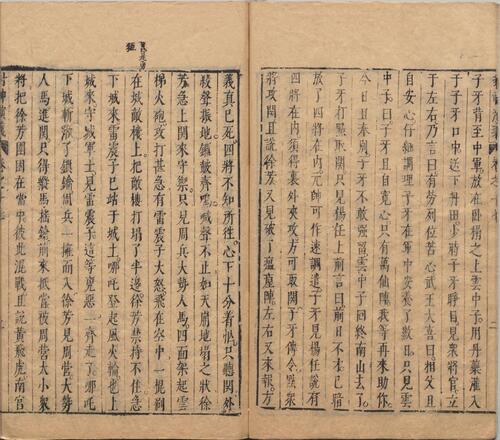 子牙至中放在卧搨之上雲中子用丹藥灌入
子牙口中送下丹田少時子牙睜目見衆將官立
于左右乃言曰有勞列位苦心武王大喜曰相父且
自安心仔細調理子牙在軍中安養了數日只見雲
中子曰子牙且自寬心只有萬仙陣我等再來助你
今日且奉别子牙不敢强留雲中子回終南山去了
子牙打點取關只見楊任上前言曰前日不才已暗
放了四將在内元帥可作速調遣子牙見楊任說有
四將在内須得裏外夾攻方可取關子牙傳令點衆
攻關且說徐芳又見破了瘟陣左右又來報方
義真已死四將不知所往心下十分着忙只聽関外
殺聲振地鑼皷齊鳴喊聲不止如天崩地塌之狀徐
芳急上関來守禦只見周兵大勢人馬四面架起雲
梯火砲攻打甚急有雷震子大怒飛在空中一棍刷
在城敵樓上把敵樓打塌了半邊徐芳禁持不住急
下城來雷震子已站于城上哪吒登起風火輪也上
城來守城軍士見雷震子這等兇惡一齊走了哪吒
下城斬落了鎖鑰周兵一擁而入徐芳見周營大勢
人馬進関只得縱馬搖鎗前來抵當被周營大小衆
將把徐芳圍困在當中彼此混戰且說黃飛虎南宮